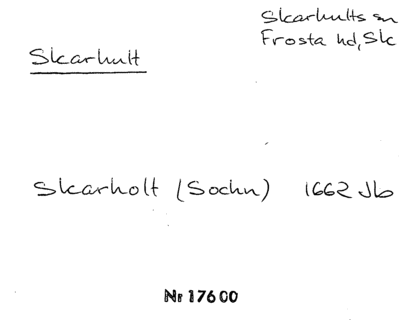 Skarhults sn
Frosta hd, Sk
Skarhult
Skarholt (Sochn) 1662 Jb
Nr 17600